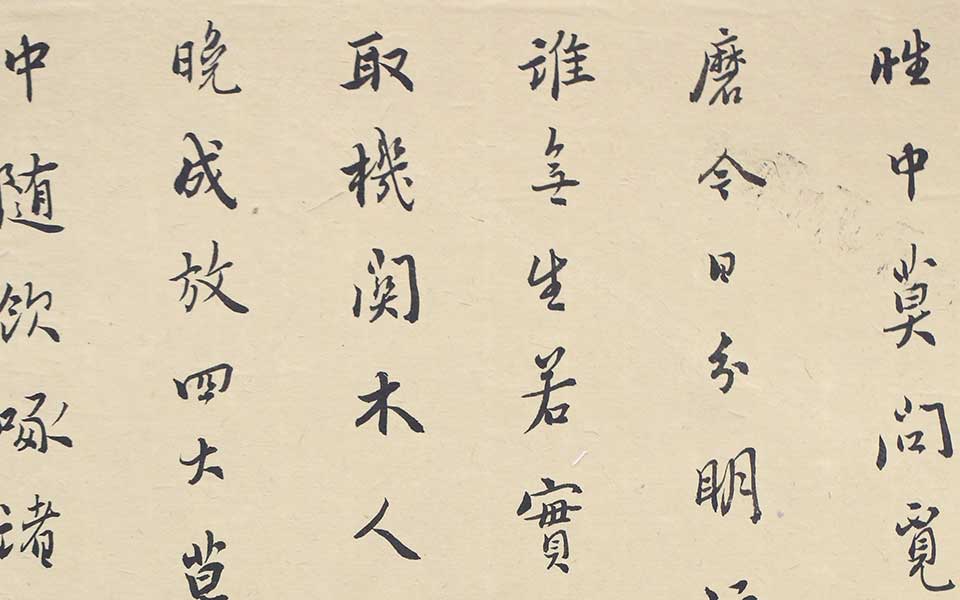 性中莫問覓
磨今日分明
誰無生若實
取機関木人
晚成放四大莫
中随飲啄諸